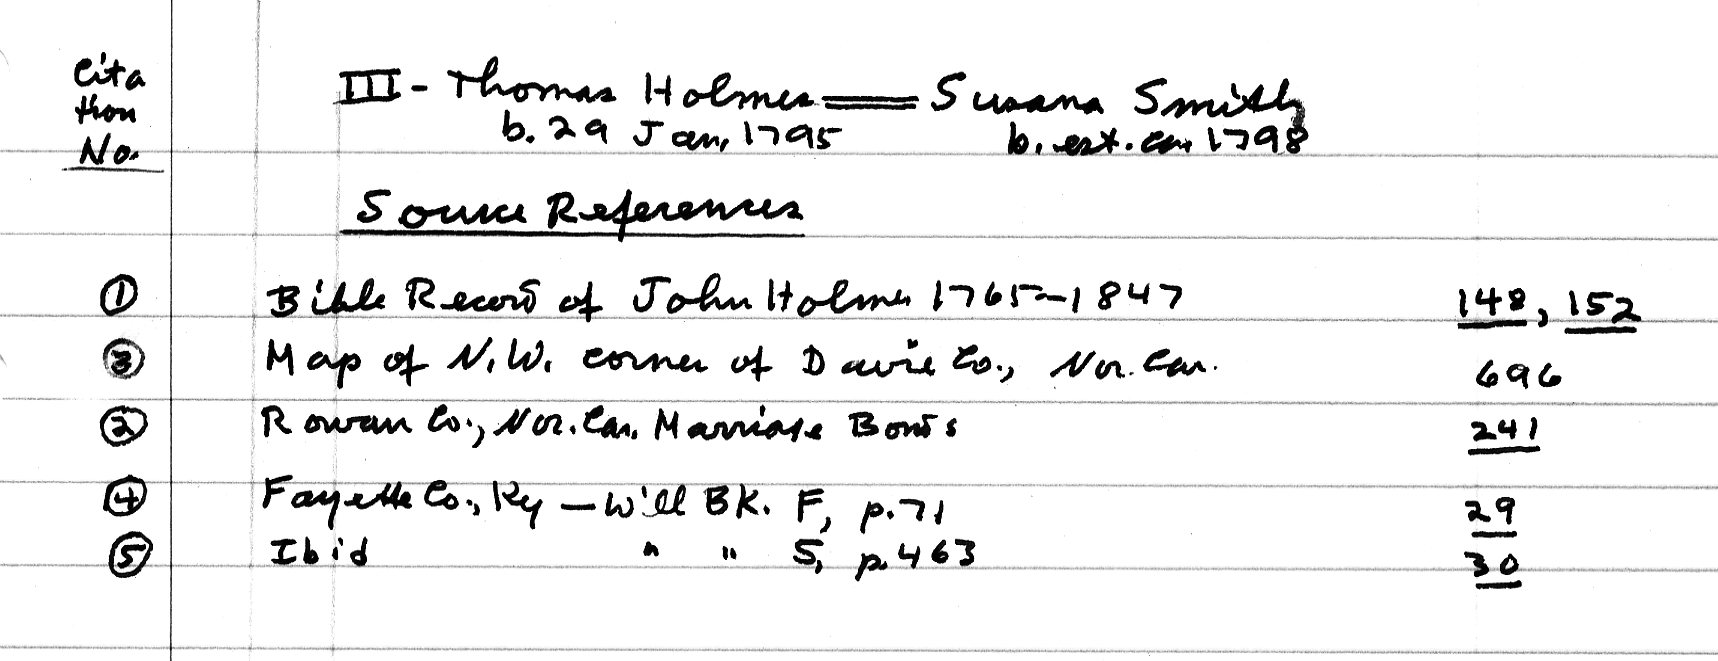 Cita
tion
No.
III - Thomas Holmes == Susana Smith
b. 29 Jan, 1795 b. est. ca. 1798
Source References
① Bible Record of John Holmes 1765-1847 148, 152
③ Map of N.W. corner of Davie Co., Nor. Car. 696
② Rowan Co., Nor. Car. Marriage Bonds 241
④ Fayette Co., Ky — Will BK. F, p. 71 29
⑤ Ibid " " S, p. 463 30